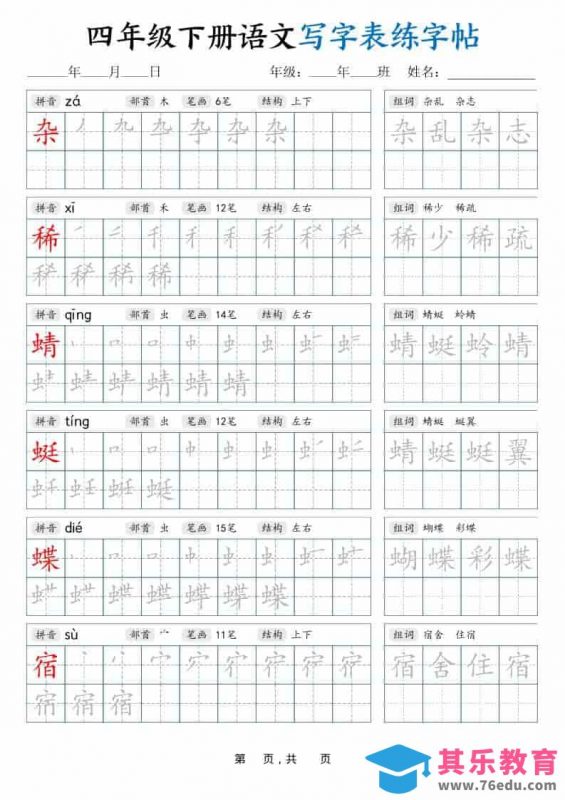 四年级下册语文写字表练字帖
____年____月____日 年级：____年____班 姓名：____________
拼音 zá 部首 木 笔画 6笔 结构 上下 组词 杂乱 杂志
杂 杂 杂乱杂志
拼音 xī 部首 木 笔画 12笔 结构 左右 组词 稀少 稀疏
稀 稀少稀疏
稀
拼音 qīng 部首 虫 笔画 14笔 结构 左右 组词 蜻蜓 蛉蜻
蜻 蜻蜓蛉蜻
蜻
拼音 tíng 部首 虫 笔画 12笔 结构 左右 组词 蜻蜓 蜓翼
蜓 蜻蜓蜓翼
蜓
拼音 dié 部首 虫 笔画 15笔 结构 左右 组词 蝴蝶 彩蝶
蝶 蝴蝶彩蝶
蝶
拼音 sù 部首 宀 笔画 11笔 结构 上下 组词 宿舍 住宿
宿 宿舍住宿
宿
第 页，共 页
其乐教育
www.76edu.com